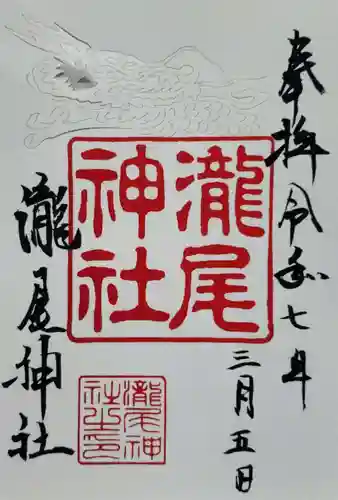 奉拝 令和七年
三月五日
瀧尾神社
瀧尾神社
瀧尾神社之印